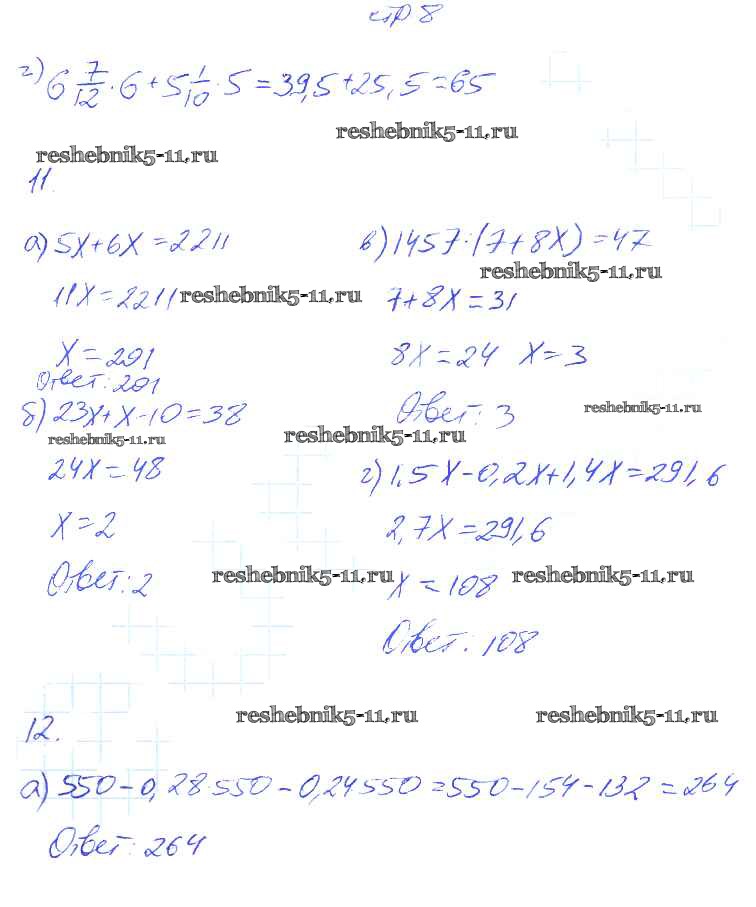 стр 8
г) 6 7/12 · 6 + 5 1/10 · 5 = 39,5 + 25,5 = 65
reshebnik5-11.ru
reshebnik5-11.ru
11.
а) 5x + 6x = 2211
11x = 2211
reshebnik5-11.ru
x = 201
Ответ: 201
б) 23x + x - 10 = 38
reshebnik5-11.ru
24x = 48
x = 2
Ответ: 2
в) 1457 : (7 + 8x) = 47
reshebnik5-11.ru
7 + 8x = 31
8x = 24 x = 3
Ответ: 3
reshebnik5-11.ru
reshebnik5-11.ru
г) 1,5x - 0,2x + 1,4x = 291,6
2,7x = 291,6
reshebnik5-11.ru
reshebnik5-11.ru
x = 108
Ответ: 108
reshebnik5-11.ru
reshebnik5-11.ru
12.
а) 550 - 0,28·550 - 0,24 550 = 550 - 154 - 132 = 264
Ответ: 264